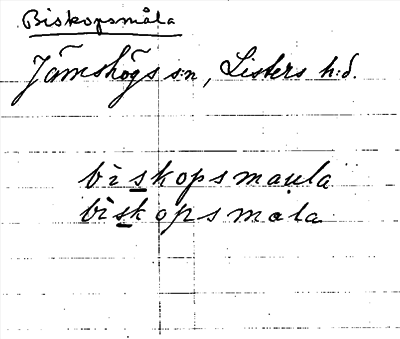 Biskopsmåla
Jämshögs sn, Listers h:d.
biskopsmaula
biskopsmåla